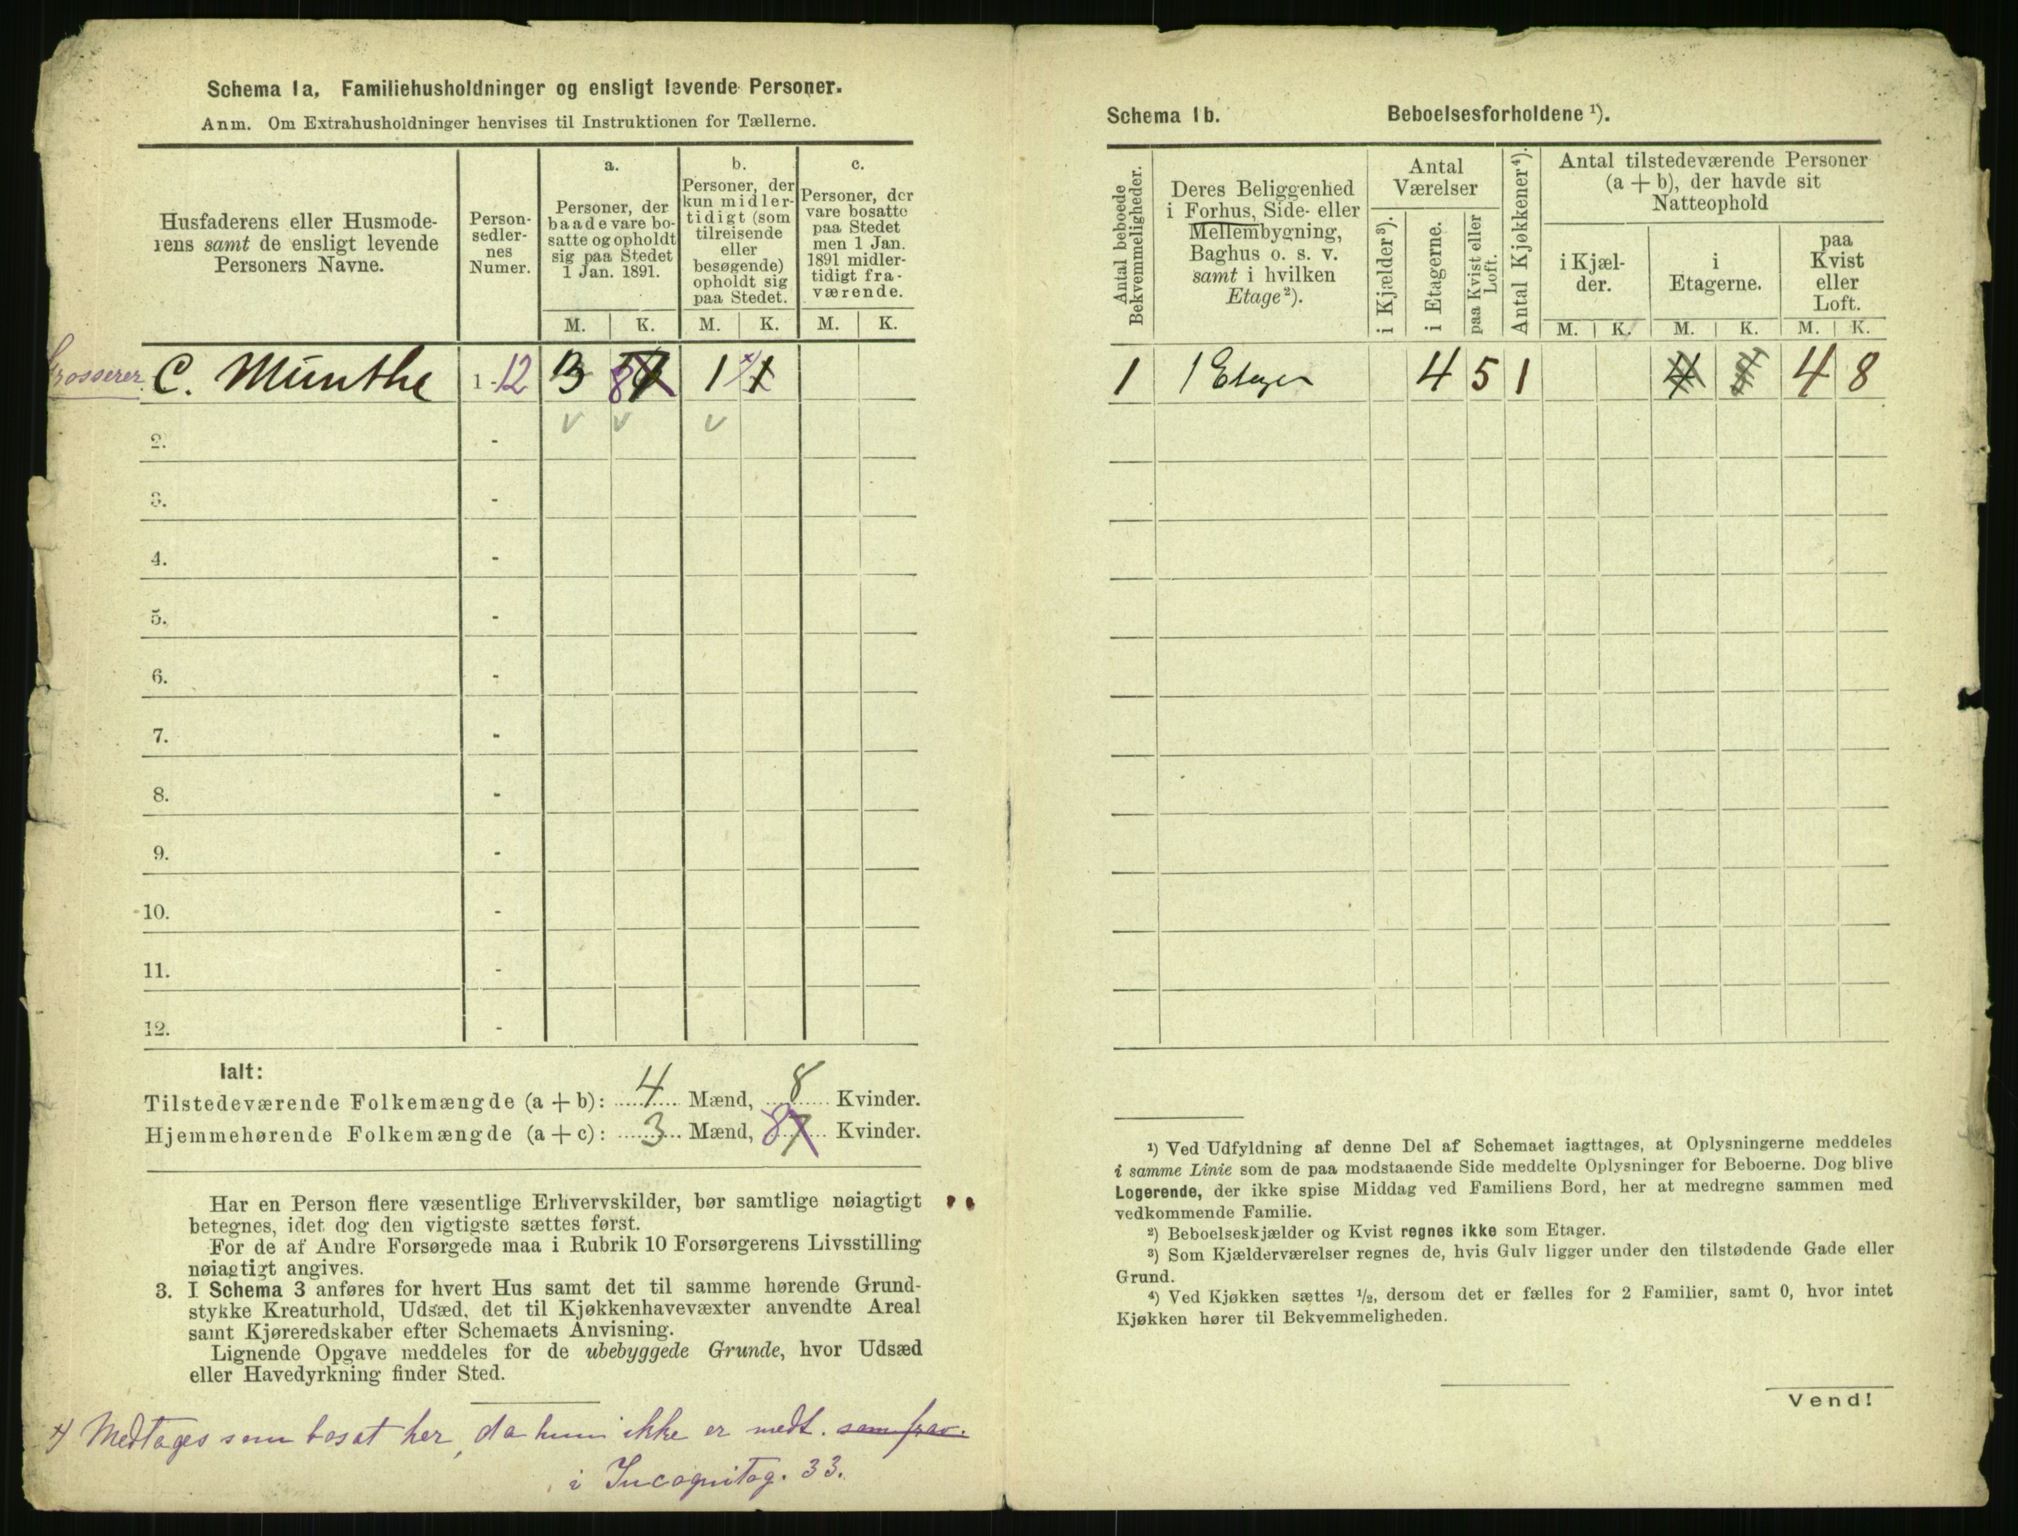 Schema 1a. Familiehusholdninger og ensligt levende Personer.
Anm. Om Extrahusholdninger henvises til Instruktionen for Tællerne.
Husfaderens eller Husmode-
rens samt de ensligt levende
Personers Navne.
Person-
sedler-
nes
Numer.
a.
Personer, der
baade vare bo-
satte og opholdt
sig paa Stedet
1 Jan. 1891.
b.
Personer, der
kun midler-
tidigt (som
tilreisende
eller
besøgende)
opholdt sig
paa Stedet.
c.
Personer, der
vare bosatte
paa Stedet
men 1 Jan.
1891 midler-
tidigt fra-
værende.
M. K. M. K. M. K.
Grosserer C. Munthe 1-12 3 8 1 1
2. -
3. -
4. -
5. -
6. -
7. -
8. -
9. -
10. -
11. -
12. -
Ialt:
Tilstedeværende Folkemængde (a + b): 4 Mænd, 8 Kvinder.
Hjemmehørende Folkemængde (a + c): 3 Mænd, 8 7 Kvinder.
Har en Person flere væsentlige Erhvervskilder, bør samtlige nøiagtigt
betegnes, idet dog den vigtigste sættes først.
For de af Andre Forsørgede maa i Rubrik 10 Forsørgerens Livsstilling
nøiagtigt angives.
3. I Schema 3 anføres for hvert Hus samt det til samme hørende Grund-
stykke Kreaturhold, Udsæd, det til Kjøkkenhavevæxter anvendte Areal
samt Kjøreredskaber efter Schemaets Anvisning.
Lignende Opgave meddeles for de ubebyggede Grunde, hvor Udsæd
eller Havedyrkning finder Sted.
x) Medtages som bosat her, da hun ikke er medt. som frav.
i Incognitog. 33.
Schema 1b. Beboelsesforholdene ¹).
Antal beboede
Bekvemmeligheder.
Deres Beliggenhed
i Forhus, Side- eller
Mellembygning,
Baghus o. s. v.
samt i hvilken
Etage²).
Antal
Værelser
i Kjælder³).
i Etagerne.
paa Kvist eller
Loft.
Antal Kjøkkener⁴).
Antal tilstedeværende Personer
(a + b), der havde sit
Natteophold
i Kjæl-
der.
i
Etagerne.
paa
Kvist
eller
Loft.
M. K. M. K. M. K.
1 1 Etager 4 5 1 4 8
¹) Ved Udfyldning af denne Del af Schemaet iagttages, at Oplysningerne meddeles
i samme Linie som de paa modstaaende Side meddelte Oplysninger for Beboerne. Dog blive
Logerende, der ikke spise Middag ved Familiens Bord, her at medregne sammen med
vedkommende Familie.
²) Beboelseskjælder og Kvist regnes ikke som Etager.
³) Som Kjælderværelser regnes de, hvis Gulv ligger under den tilstødende Gade eller
Grund.
⁴) Ved Kjøkken sættes ½, dersom det er fælles for 2 Familier, samt 0, hvor intet
Kjøkken hører til Bekvemmeligheden.
Vend!